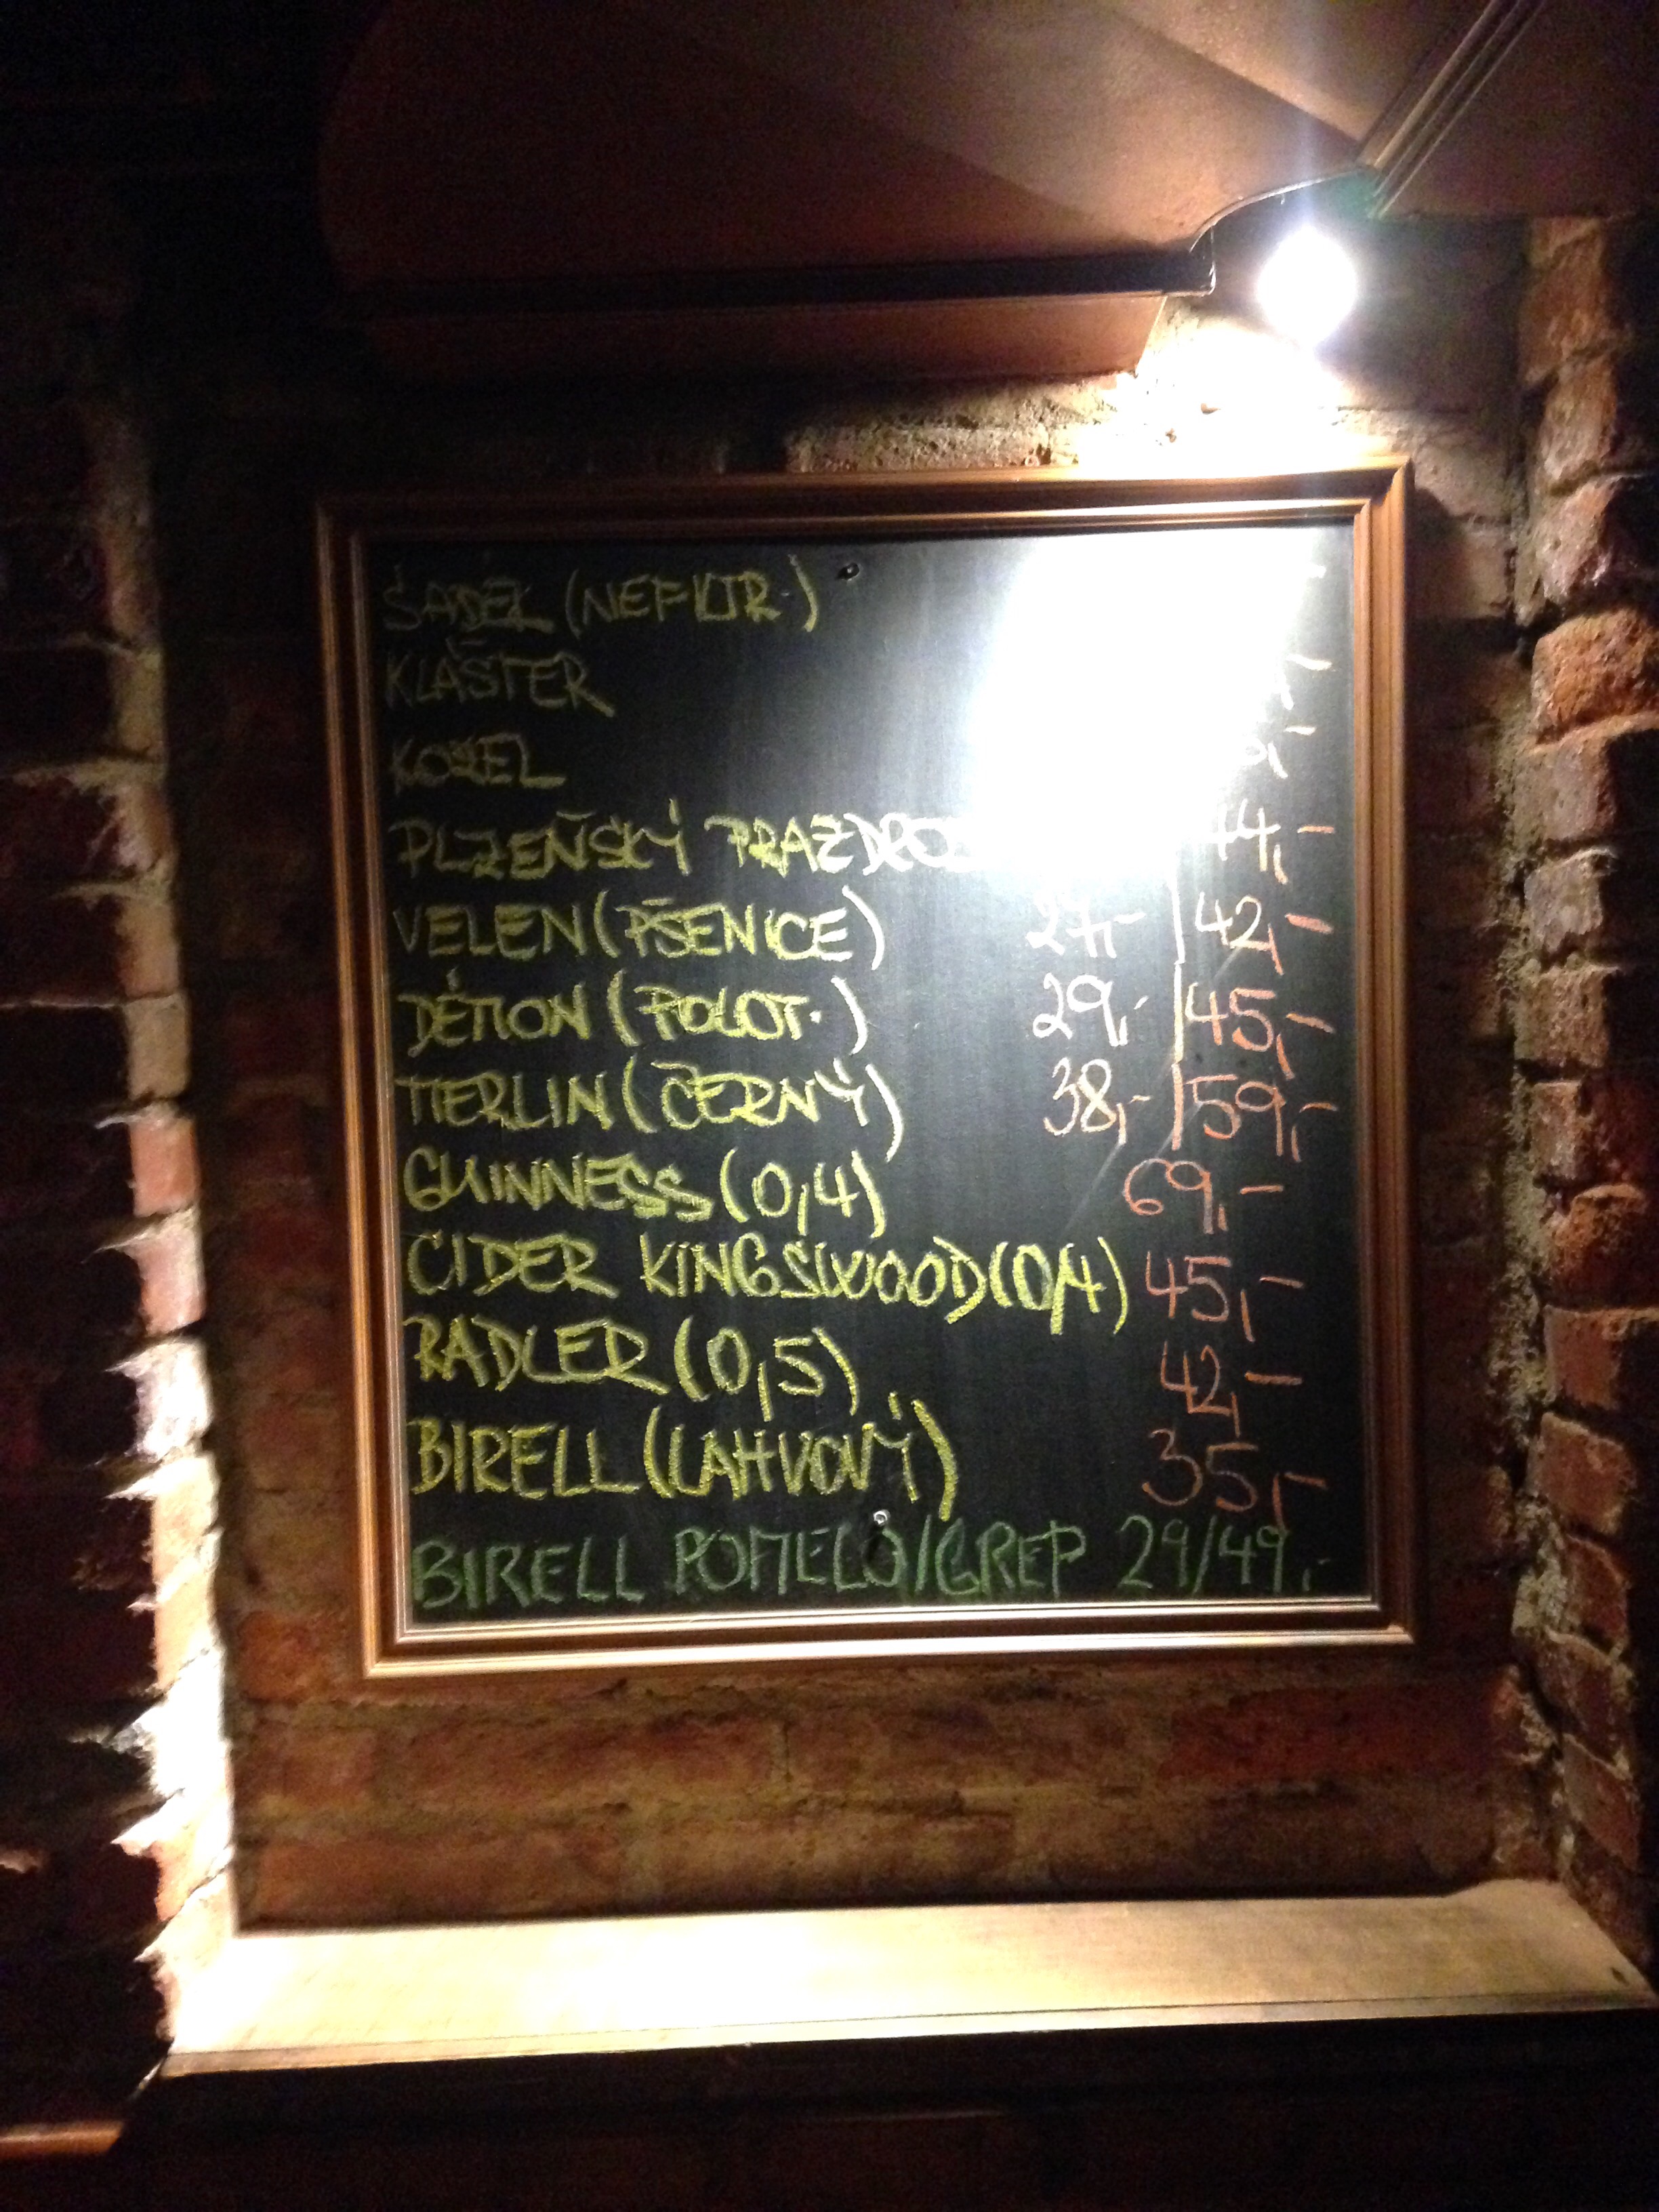 SADEL (NEFILTR.)
KLÁŠTER
KOZEL
PLZEŇSKÝ PRAZDROJ 44,-
VELEN (PŠENICE) 27,- | 42,-
DÉMON (POLOT.) 29,- | 45,-
MERLIN (ČERNÝ) 38,- | 59,-
GUINNESS (0,4) 69,-
CIDER KINGSWOOD (0,4) 45,-
RADLER (0,5) 42,-
BIRELL (LAHVOVÝ) 35,-
BIRELL POMELO/GREP 29/49,-